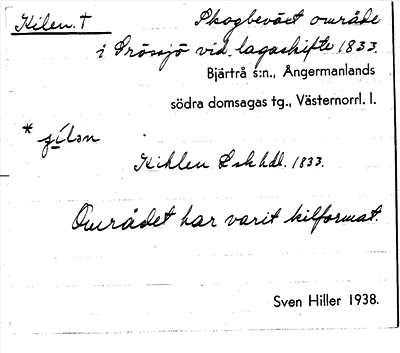 Kilen. † Skogbeväxt område
i Grössjö vid lagaskifte 1833.
Bjärtrå s:n., Ångermanlands
södra domsagas tg., Västernorrl. l.
* ɟi̲lən
Kihlen Lskhdl. 1833.
Området har varit kilformat.
Sven Hiller 1938.